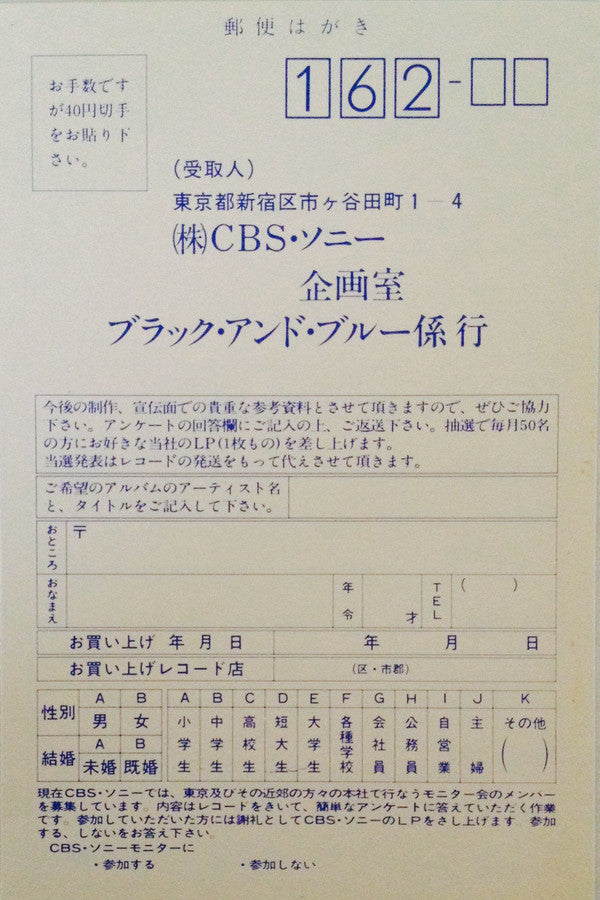 郵便はがき
お手数です
が40円切手
をお貼り下
さい。
162-
(受取人)
東京都新宿区市ヶ谷田町1-4
㈱CBS・ソニー
企画室
ブラック・アンド・ブルー係 行
今後の制作、宣伝面での貴重な参考資料とさせて頂きますので、ぜひご協力
下さい。アンケートの回答欄にご記入の上、ご返送下さい。抽選で毎月50名
の方にお好きな当社のLP(1枚もの)を差し上げます。
当選発表はレコードの発送をもって代えさせて頂きます。
ご希望のアルバムのアーティスト名
と、タイトルをご記入して下さい。
おところ 〒
おなまえ 年令 才 TEL ( )
お買い上げ 年 月 日 年 月 日
お買い上げレコード店 (区・市郡)
性別 A 男 B 女
結婚 A 未婚 B 既婚
A 小学生 B 中学生 C 高校生 D 短大生 E 大学生 F 各種学校 G 会社員 H 公務員 I 自営業 J 主婦 K その他 ( )
現在CBS・ソニーでは、東京及びその近郊の方々の本社で行なうモニター会のメンバー
を募集しています。内容はレコードをきいて、簡単なアンケートに答えていただく作業
です。参加していただいた方には謝礼としてCBS・ソニーのLPをさし上げます。参加
する、しないをお答え下さい。
CBS・ソニーモニターに
・参加する ・参加しない